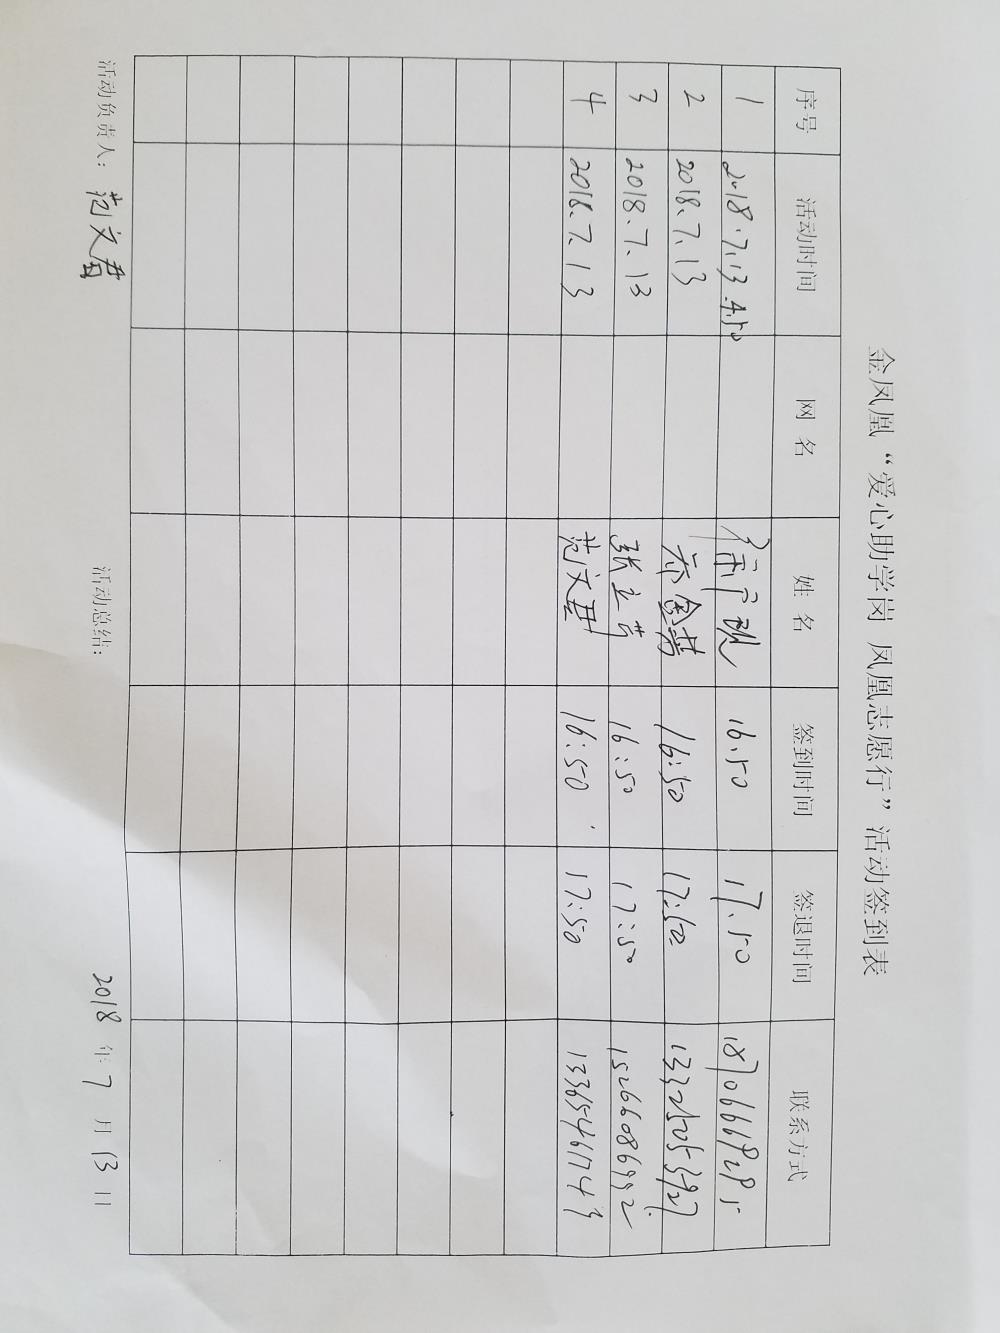 金凤凰“爱心助学岗 凤凰志愿行”活动签到表
序号 活动时间 网 名 姓 名 签到时间 签退时间 联系方式
1 2018.7.13 4:50 16.50 17.50
2 2018.7.13 16:50 17:50 13325053927
3 2018.7.13 张立芳 16:50 17:50 15266086992
4 2018.7.13 范文君 16:50 17:50
活动负责人: 范文君 活动总结: 2018 年 7 月 13 日